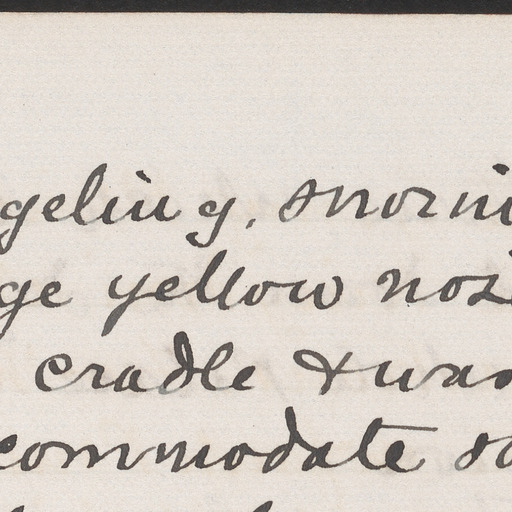 geling, snorin
ge yellow nos
cradle & was
commodate so